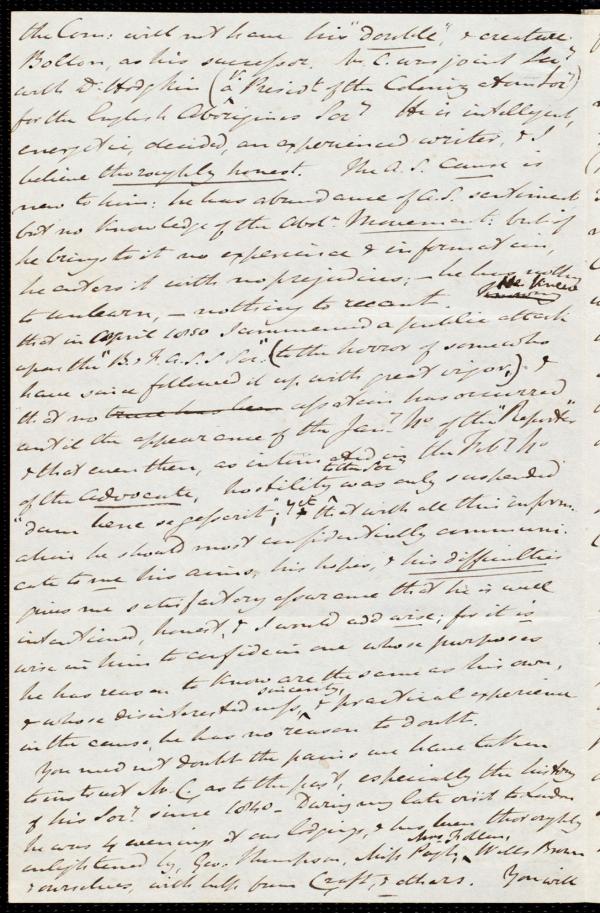 the Com: will not have his "double", & creature
Bolton, as his successor. Mr. C. was joint Secy
with Dr. Hodgkin (a Presidt of the Colony
for the English Aborigines Socy He is intelligent,
energetic, decided, an experienced writer, & I
believe thoroughly honest. The A. S. Cause is
new to him: he has abundance of a. S. sentiment
but no knowledge of the Abol. Movement: but if
he brings to it no experience & information,
he enters it with no prejudices, — he has nothing
to unlearn, — nothing to recant. He knew
that in April 1850 I commenced a public attack
upon the "B. & F. A. S. Soc." (to the horror of some who
have since followed it up with great vigor,) &
that no cessation has occurred
until the appearance of the Jany No of the "Reporter"
& that even then, as intimated in the Feby No
of the Advocate, hostility to the Socy was only suspended
"dum bene se gesserit"; yet that with all this inform-
ation he should most confidentially communi-
cate to me his aims, his hopes, & his difficulties
gives me satisfactory assurance that he is well
intentioned, honest, & I would add wise; for it is
wise in him to confide in one whose purposes
he has reason to know are the same as his own,
& whose disinterestedness, sincerity, & practical experience
in the cause, he has no reason to doubt.
You need not doubt the pains we have taken
to instruct Mr. C. as to the past, especially the history
of his Socy since 1840 - During my late visit to London
he was 4 evenings at our lodgings, & has been thoroughly
enlightened by, Geo. Thompson, Miss Pugh, Mrs. Follen, Wells Brown
& ourselves, with help from Craft, & others. You will